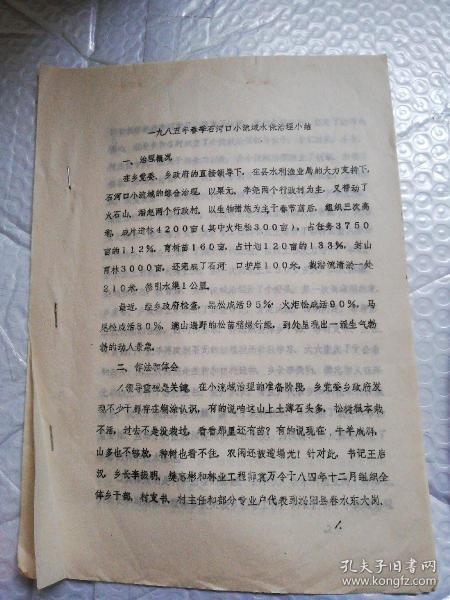 一九八五年春季石河口小流域水保治理小结
一、治理概况
在乡党委、乡政府的直接领导下，在县水利渔业局的大力支持下，
石河口小流域的综合治理，以果元、李尧两个行政村为主，又带动了
火石山、两个行政村，以生物措施为主于春节前后，组织三次高
潮，成片造林4200亩（其中火炬松300亩），占任务3750
亩的112%，育树苗160亩，占计划120亩的133%，封山
育林3000亩，还完成了石河口护岸100米，截治流清淤一处
210米，修引水渠1公里。
最近，经乡政府检查，黑松成活95%，火炬松成活90%，马
尾松成活80%，满山遍野的松苗精嫩针绿，到处呈现出一派生气勃
勃的动人景象。
二、作法和体会
1.领导重视是关键，在小流域治理的准备阶段，乡党委乡政府发
现不少干部存在糊涂认识，有的说咱这山上土薄石头多，松树根本栽
不活，过去不是没栽过，看看那里还有苗？有的说现在，牛羊成群，
山多也不够放，种树也看不住，农闲还被遭塌光！针对此，书记王启
汉，乡长李振明，樊志彬和林业工程师袁万令于八四年十二月组织全
体乡干部，村支书，村主任和部分专业户代表到泌阳县春水东大岗，
1.
孔夫子旧书网
www.kongfz.com